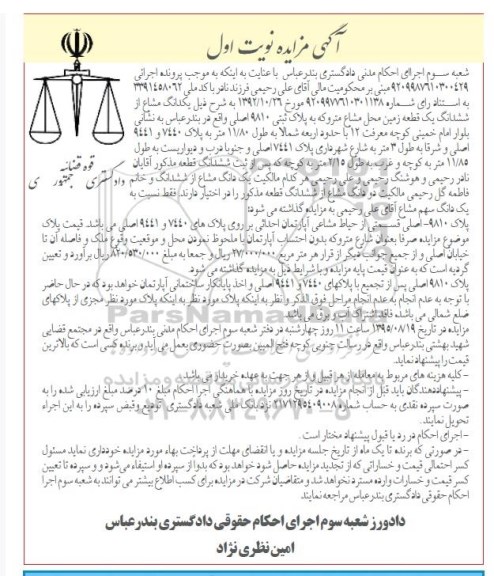 آگهی مزایده نوبت اول
قوه قضائیه
دادگستری جمهوری
شعبه سوم اجرای احکام مدنی دادگستری بندرعباس با عنایت به اینکه به موجب پرونده اجرائی
۹۲۰۹۹۸۷۶۱۰۳۰۰۴۲۹ مبنی بر محکومیت مالی آقای علی رحیمی فرزند نادر با کد ملی ۳۳۹۱۴۵۸۰۶۲
به استناد رای شماره ۹۲۰۹۹۷۷۶۱۰۳۰۱۱۳۸ مورخ ۱۳۹۲/۱۰/۲۶ به شرح ذیل یکدانگ مشاع از
ششدانگ یک قطعه زمین محل مشاع متروکه به پلاک ثبتی ۹۸۱۰ اصلی واقع در بندرعباس به نشانی
بلوار امام خمینی کوچه معرفت ۱۲ با حدود اربعه شمالا به طول ۱۱/۸۰ متر به پلاک ۷۴۴۰ و ۹۴۴۱
اصلی و شرقا به طول ۳ متر به شارع شهرداری پلاک ۷۴۴۱ اصلی و جنوبا درب و دیواریست به طول
۱۱/۸۵ متر به کوچه و غربا به طول ۲/۱۵ متر به کوچه که پس از ثبت ششدانگ قطعه مذکور آقایان
نادر رحیمی و هوشنگ رحیمی و علی رحیمی هر کدام مالکیت یک دانگ مشاع از ششدانگ و خانم
فاطمه گل رحیمی مالکیت دو دانگ مشاع از ششدانگ قطعه مذکور را در اختیار دارند، فقط نسبت به
یک دانگ سهم مشاع آقای علی رحیمی به مزایده گذاشته می شود:
پلاک ۹۸۱۰- اصلی قسمتی از حیاط مشاعی آپارتمان احداثی بر روی پلاک های ۷۴۴۰ و ۹۴۴۱ اصلی می باشد. قیمت پلاک
موضوع مزایده صرفا بعنوان شارع متروکه بدون احتساب آپارتمان با ملحوظ نمودن محل و موقعیت وقوع ملک و فاصله آن تا
خیابان اصلی و از جمیع جوانب دیگر از قرار هر متر مربع ۲۷/۰۰۰/۰۰۰ ریال و جمعا به مبلغ ۸۲۰/۵۳۰/۰۰۰ ریال برآورد و تعیین
گردیده است که به عنوان قیمت پایه مزایده و با شرایط ذیل به مزایده گذاشته می شود.
پلاک ۹۸۱۰ اصلی پس از تجمیع با پلاکهای ۷۴۴۰ و ۹۴۴۱ اصلی و اخذ پایانکار ساختمانی آپارتمان خواهد بود که در حال حاضر
با توجه به عدم انجام به عدم انجام مراحل فوق الذکر و نظر به اینکه پلاک مورد نظر به اینکه پلاک مورد نظر مجزی از پلاکهای
ضلع شمالی می باشد، فاقد اشتراک آب و برق می باشد.
مزایده در تاریخ ۱۳۹۵/۰۸/۱۹ ساعت ۱۱ روز چهارشنبه در دفتر شعبه سوم اجرای احکام مدنی بندرعباس واقع در مجتمع قضایی
شهید بهشتی بندرعباس واقع در رسالت جنوبی کوچه فتح المبین بصورت حضوری بعمل می آید و برنده کسی است که بالاترین
قیمت را پیشنهاد نماید.
- کلیه هزینه های مربوط به معامله از هر قبیل و از هر جهت به عهده خریدار می باشد.
- پیشنهاددهندگان باید قبل از انجام مزایده در تاریخ روز مزایده با هماهنگی اجرا احکام مبلغ ۱۰ درصد مبلغ ارزیابی شده را به
صورت سپرده نقدی به حساب شماره ۲۱۷۱۲۹۵۴۰۹۰۰۸ نزد بانک ملی شعبه دادگستری تودیع و قبض سپرده را به این اجراء
تحویل نمایند.
- اجرای احکام در رد یا قبول پیشنهاد مختار است.
- در صورتی که برنده تا یک ماه از تاریخ جلسه مزایده و یا انقضای مهلت از پرداخت بهاء مورد مزایده خودداری نماید مسئول
کسر احتمالی قیمت و خساراتی که از تجدید مزایده حاصل شود خواهد بود که بدوا از سپرده او استیفاء می شود و و سپرده تا تعیین
کسر قیمت و خسارات وارده مسترد نخواهد شد و متقاضیان شرکت در مزایده برای کسب اطلاع بیشتر می توانند به شعبه سوم اجرا
احکام حقوقی دادگستری بندرعباس مراجعه نمایند
دادورز شعبه سوم اجرای احکام حقوقی دادگستری بندرعباس
امین نظری نژاد